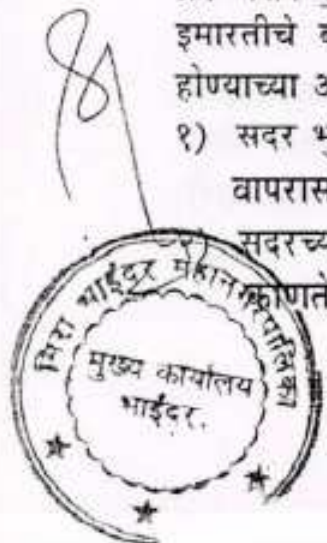 इमारतीचे
होण्याच्या
१) सदर
वापरास
२) सदरच्या
कोणते
मिरा भाईंदर महानगरपालिका
मुख्य कार्यालय
भाईंदर.